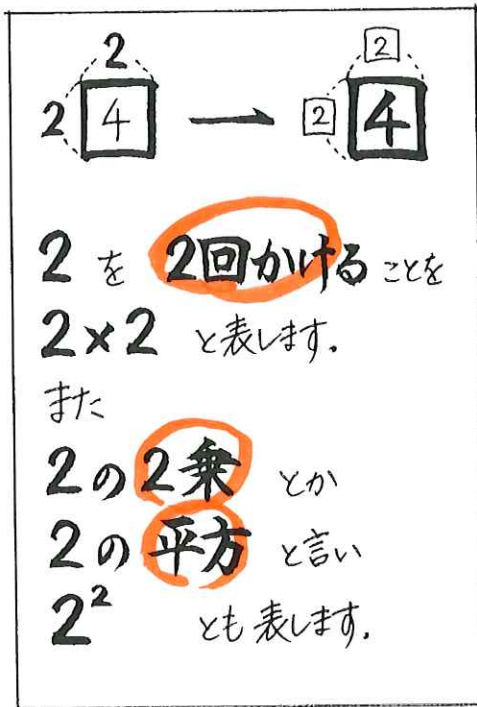 2 2
2 4 ー 2 4
2 を 2回かける ことを
2×2 と表します.
また
2の2乗 とか
2の平方 と言い
2² とも表します.